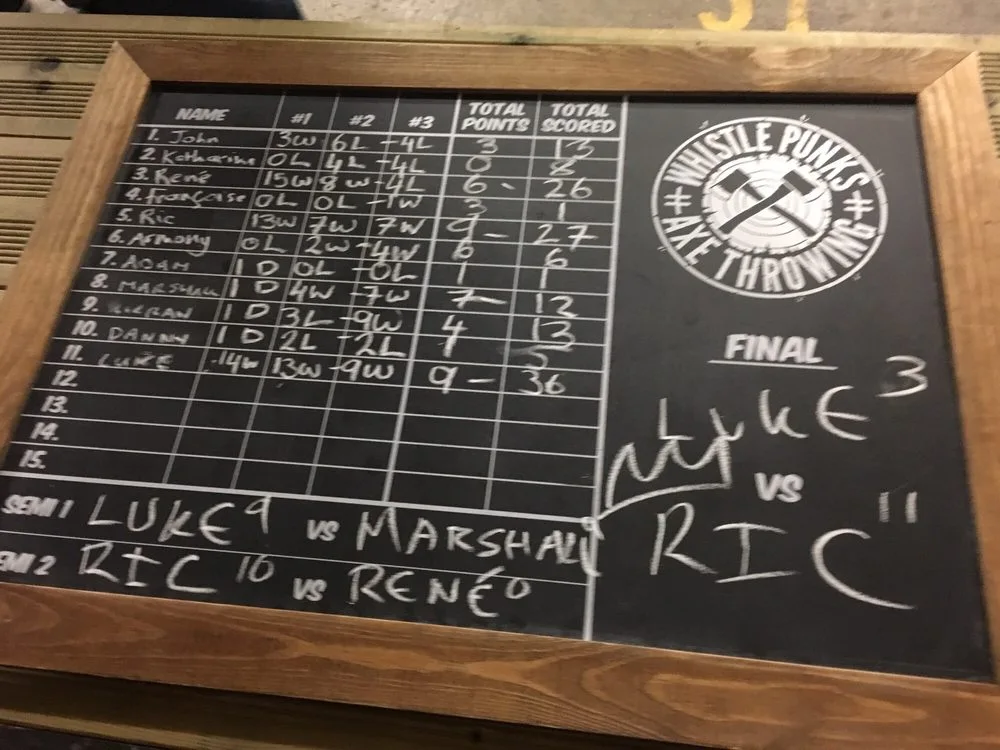 NAME #1 #2 #3 TOTAL POINTS TOTAL SCORED
1. John 3W 6L -4L 3 13
2. Katharine 0L 4L -4L 0 8
3. René 15W 8W -4L 6 - 26
4. Françoise 0L 0L -1W 3 1
5. Ric 13W 7W 7W 9 - 27
6. Armony 0L 2W -4W 6 6
7. ADAM 1D 0L -0L 1 1
8. MARSHALL 1D 4W -7W 7 - 12
9. 1D 3L -9W 4 13
10. DANNY 1D 2L -2L 1 5
11. LUKE -14W 13W -9W 9 - 36
12.
13.
14.
15.
SEMI 1 LUKE 9 VS MARSHALL
EMI 2 RIC 10 VS RENÉ 0
WHISTLE PUNKS
# #
AXE THROWING
FINAL
LUKE 3
VS
RIC 11